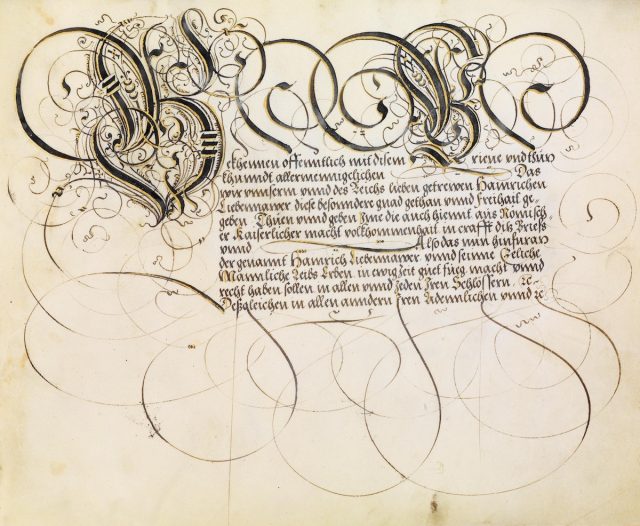 Bekhennen offenntlich mit disem Brieue vnd thun
khundt allermennigclichen Das
wir vnnserm vnnd des Reichs lieben getrewen Hainrichen
Liebenmawer diese besondere gnad gethan vnnd Freihait ge-
geben Thuen vnnd geben Jme die auch hiemit aus Romisch-
er Kaiserlicher macht volkhommenhait in crafft ditz Brieffs
vnnd Also das nun hinfuran
der genannt Hainrich Liebenmawer vnnd seinne Eeliche
Mannliche Leibs Erben in ewig zeit guet fueg macht vnnd
recht haben sollen in allen vnnd yeden Jren Schlossern, Re-
Deßgleichen in allen anndern Jren Adennlichen vnnd re